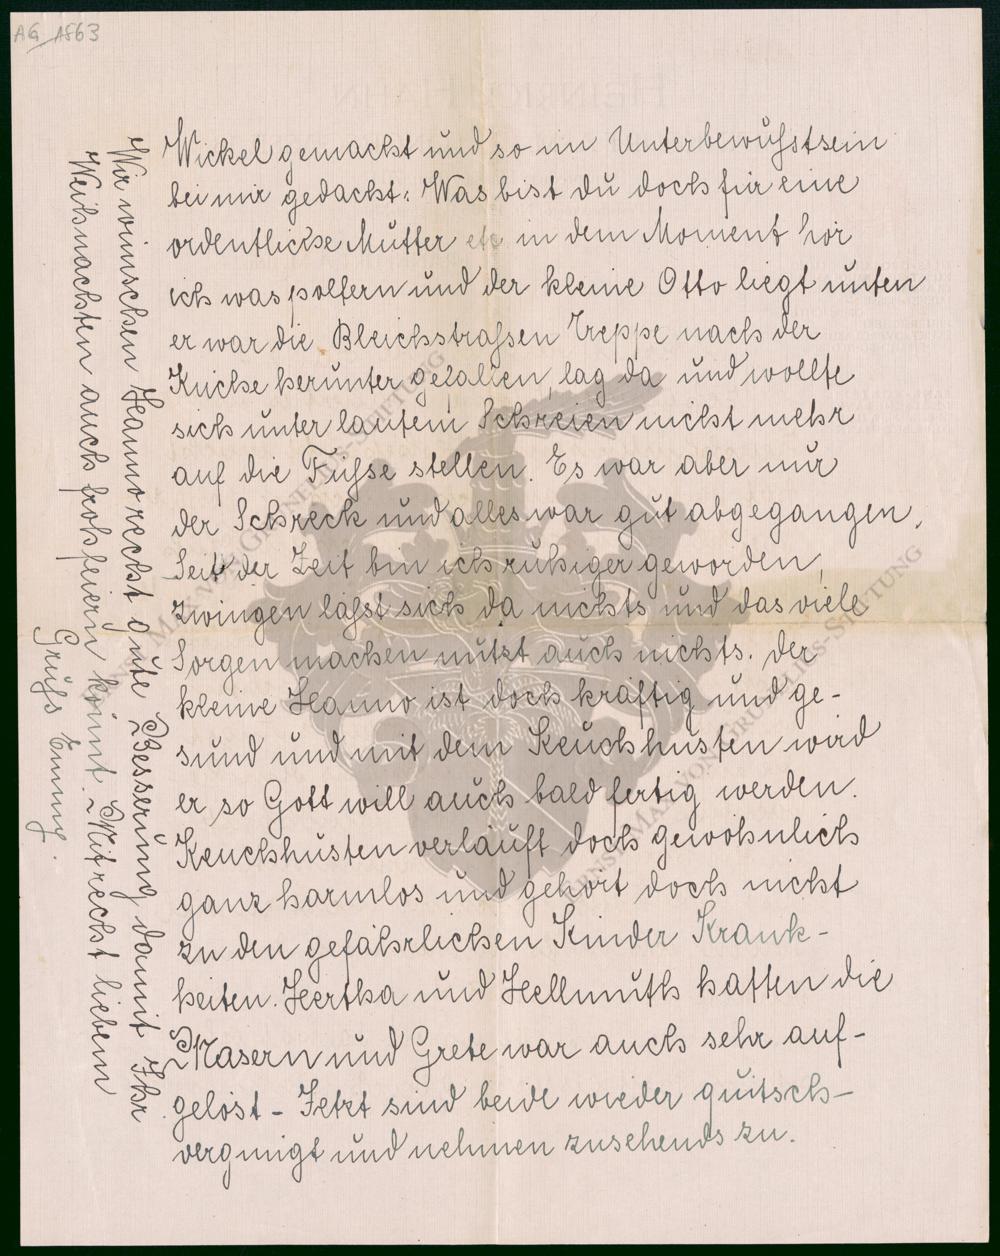 AG 1863
HEINRICH HAHN
Wickel gemacht und so im Unterbewußtsein
bei mir gedacht: Was bist du doch für eine
ordentliche Mutter etc in dem Moment hör
ich was poltern und der kleine Otto liegt unten
er war die Bleichstraßen Treppe nach der
Küche herunter gefallen, lag da und wollte
sich unter lautem Schreien nicht mehr
auf die Füße stellen. Es war aber nur
der Schreck und alles war gut abgegangen.
Seit der Zeit bin ich ruhiger geworden,
zwingen läßt sich da nichts und das viele
Sorgen machen nützt auch nichts. Der
kleine Hanno ist doch kräftig und ge-
sund und mit dem Keuchhusten wird
er so Gott will auch bald fertig werden.
Keuchhusten verläuft doch gewöhnlich
ganz harmlos und gehört doch nicht
zu den gefährlichen Kinder Krank-
heiten. Hertha und Hellmuth hatten die
Masern und Grete war auch sehr auf-
gelöst - Jetzt sind beide wieder quitsch-
vergnügt und nehmen zusehends zu.
Wir wünschen Hanno recht gute Besserung damit Ihr
Weihnachten auch froh feiern könnt. Mit recht lieben
Gruß Emmy.
ERNST MAX VON GRUNELIUS-STIFTUNG
ERNST MAX VON GRUNELIUS-STIFTUNG